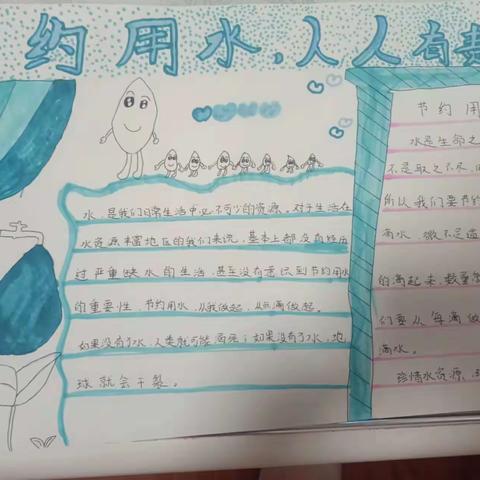 约用水,人人有责
水,是我们日常生活中必不可少的资源。对于生活在
水资源丰富地区的我们来说,基本上都没有经历
过严重缺水的生活,甚至没有意识到节约用水
的重要性,节约用水,从我做起,从点滴做起。
如果没有了水,人类就可能渴死;如果没有了水,地
球就会干裂。
节约用
水是生命之
不是取之不尽,
所以我们要节约
滴水,微不足道
的滴起来,数量
们要从每滴做
滴水。
珍惜水资源,